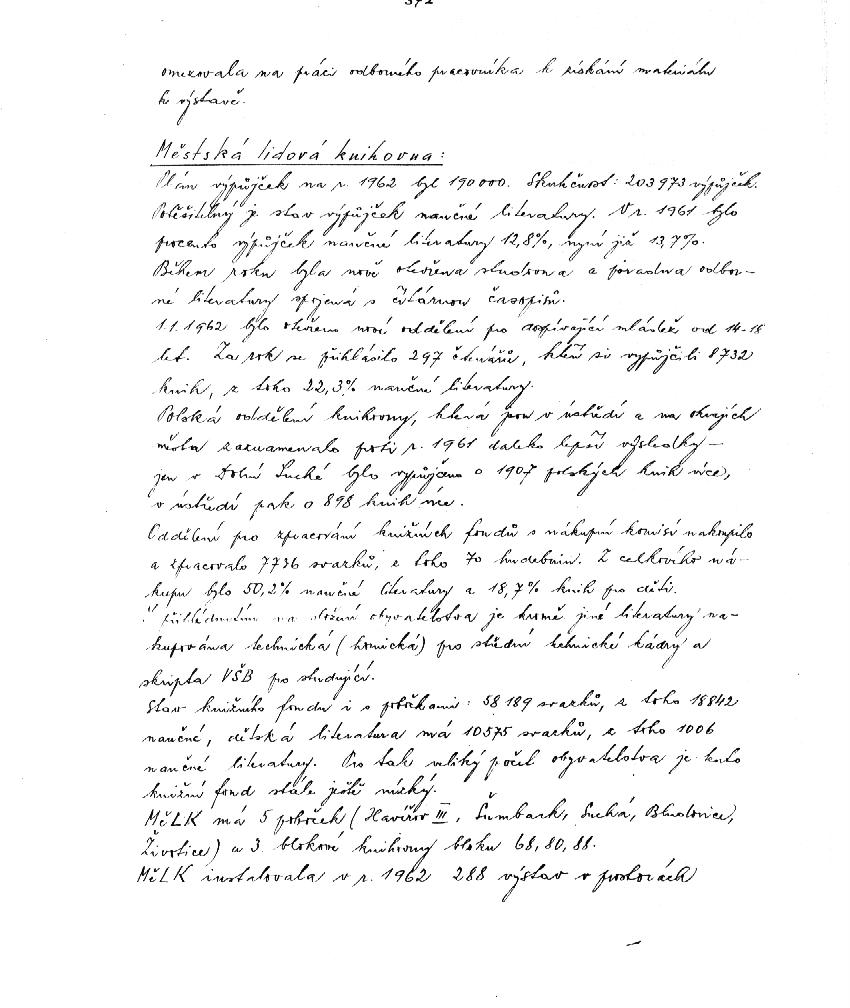 omezovala na práci odborného pracovníka k získání materiálu
k výstavě.
Městská lidová knihovna:
Plán výpůjček na r. 1962 byl 190 000. Skutečnost: 203 973 výpůjček.
Potěšitelný je stav výpůjček naučné literatury. V r. 1961 bylo
procento výpůjček naučné literatury 12,8%, nyní již 13,7%.
Během roku byla nově otevřena studovna a poradna odbor-
né literatury spojená s čítárnou časopisů.
1.1.1962 bylo otevřeno nové oddělení pro dospívající mládež od 14-18
let. Za rok se přihlásilo 297 čtenářů, kteří si vypůjčili 8732
knih, z toho 22,3% naučné literatury.
Polská oddělení knihovny, která jsou v ústředí a na okrajích
města zaznamenala proti r. 1961 daleko lepší výsledky -
jen v Dolní Suché bylo vypůjčeno o 1907 polských knih více,
v ústředí pak o 898 knih více.
Oddělení pro zpracování knižních fondů s nákupní komisí nakoupilo
a zpracovalo 7736 svazků, z toho 70 hudebnin. Z celkového ná-
kupu bylo 50,2% naučné literatury a 18,7% knih pro děti.
přihlédnutím na složení obyvatelstva je kromě jiné literatury na-
kupována technická (hornická) pro střední technické kádry a
skripta VŠB pro studující.
Stav knižního fondu i s pobočkami: 58 189 svazků, z toho 18842
naučné, dětská literatura má 10575 svazků, z toho 1006
naučné literatury. Pro tak veliký počet obyvatelstva je tento
knižní fond stále ještě nízký.
MěLK má 5 poboček (Havířov III, Šumbark, Suchá, Bludovice,
Životice) a 3. blokové knihovny bloku 68, 80, 88.
MěLK instalovala v r. 1962 288 výstav v prostorách